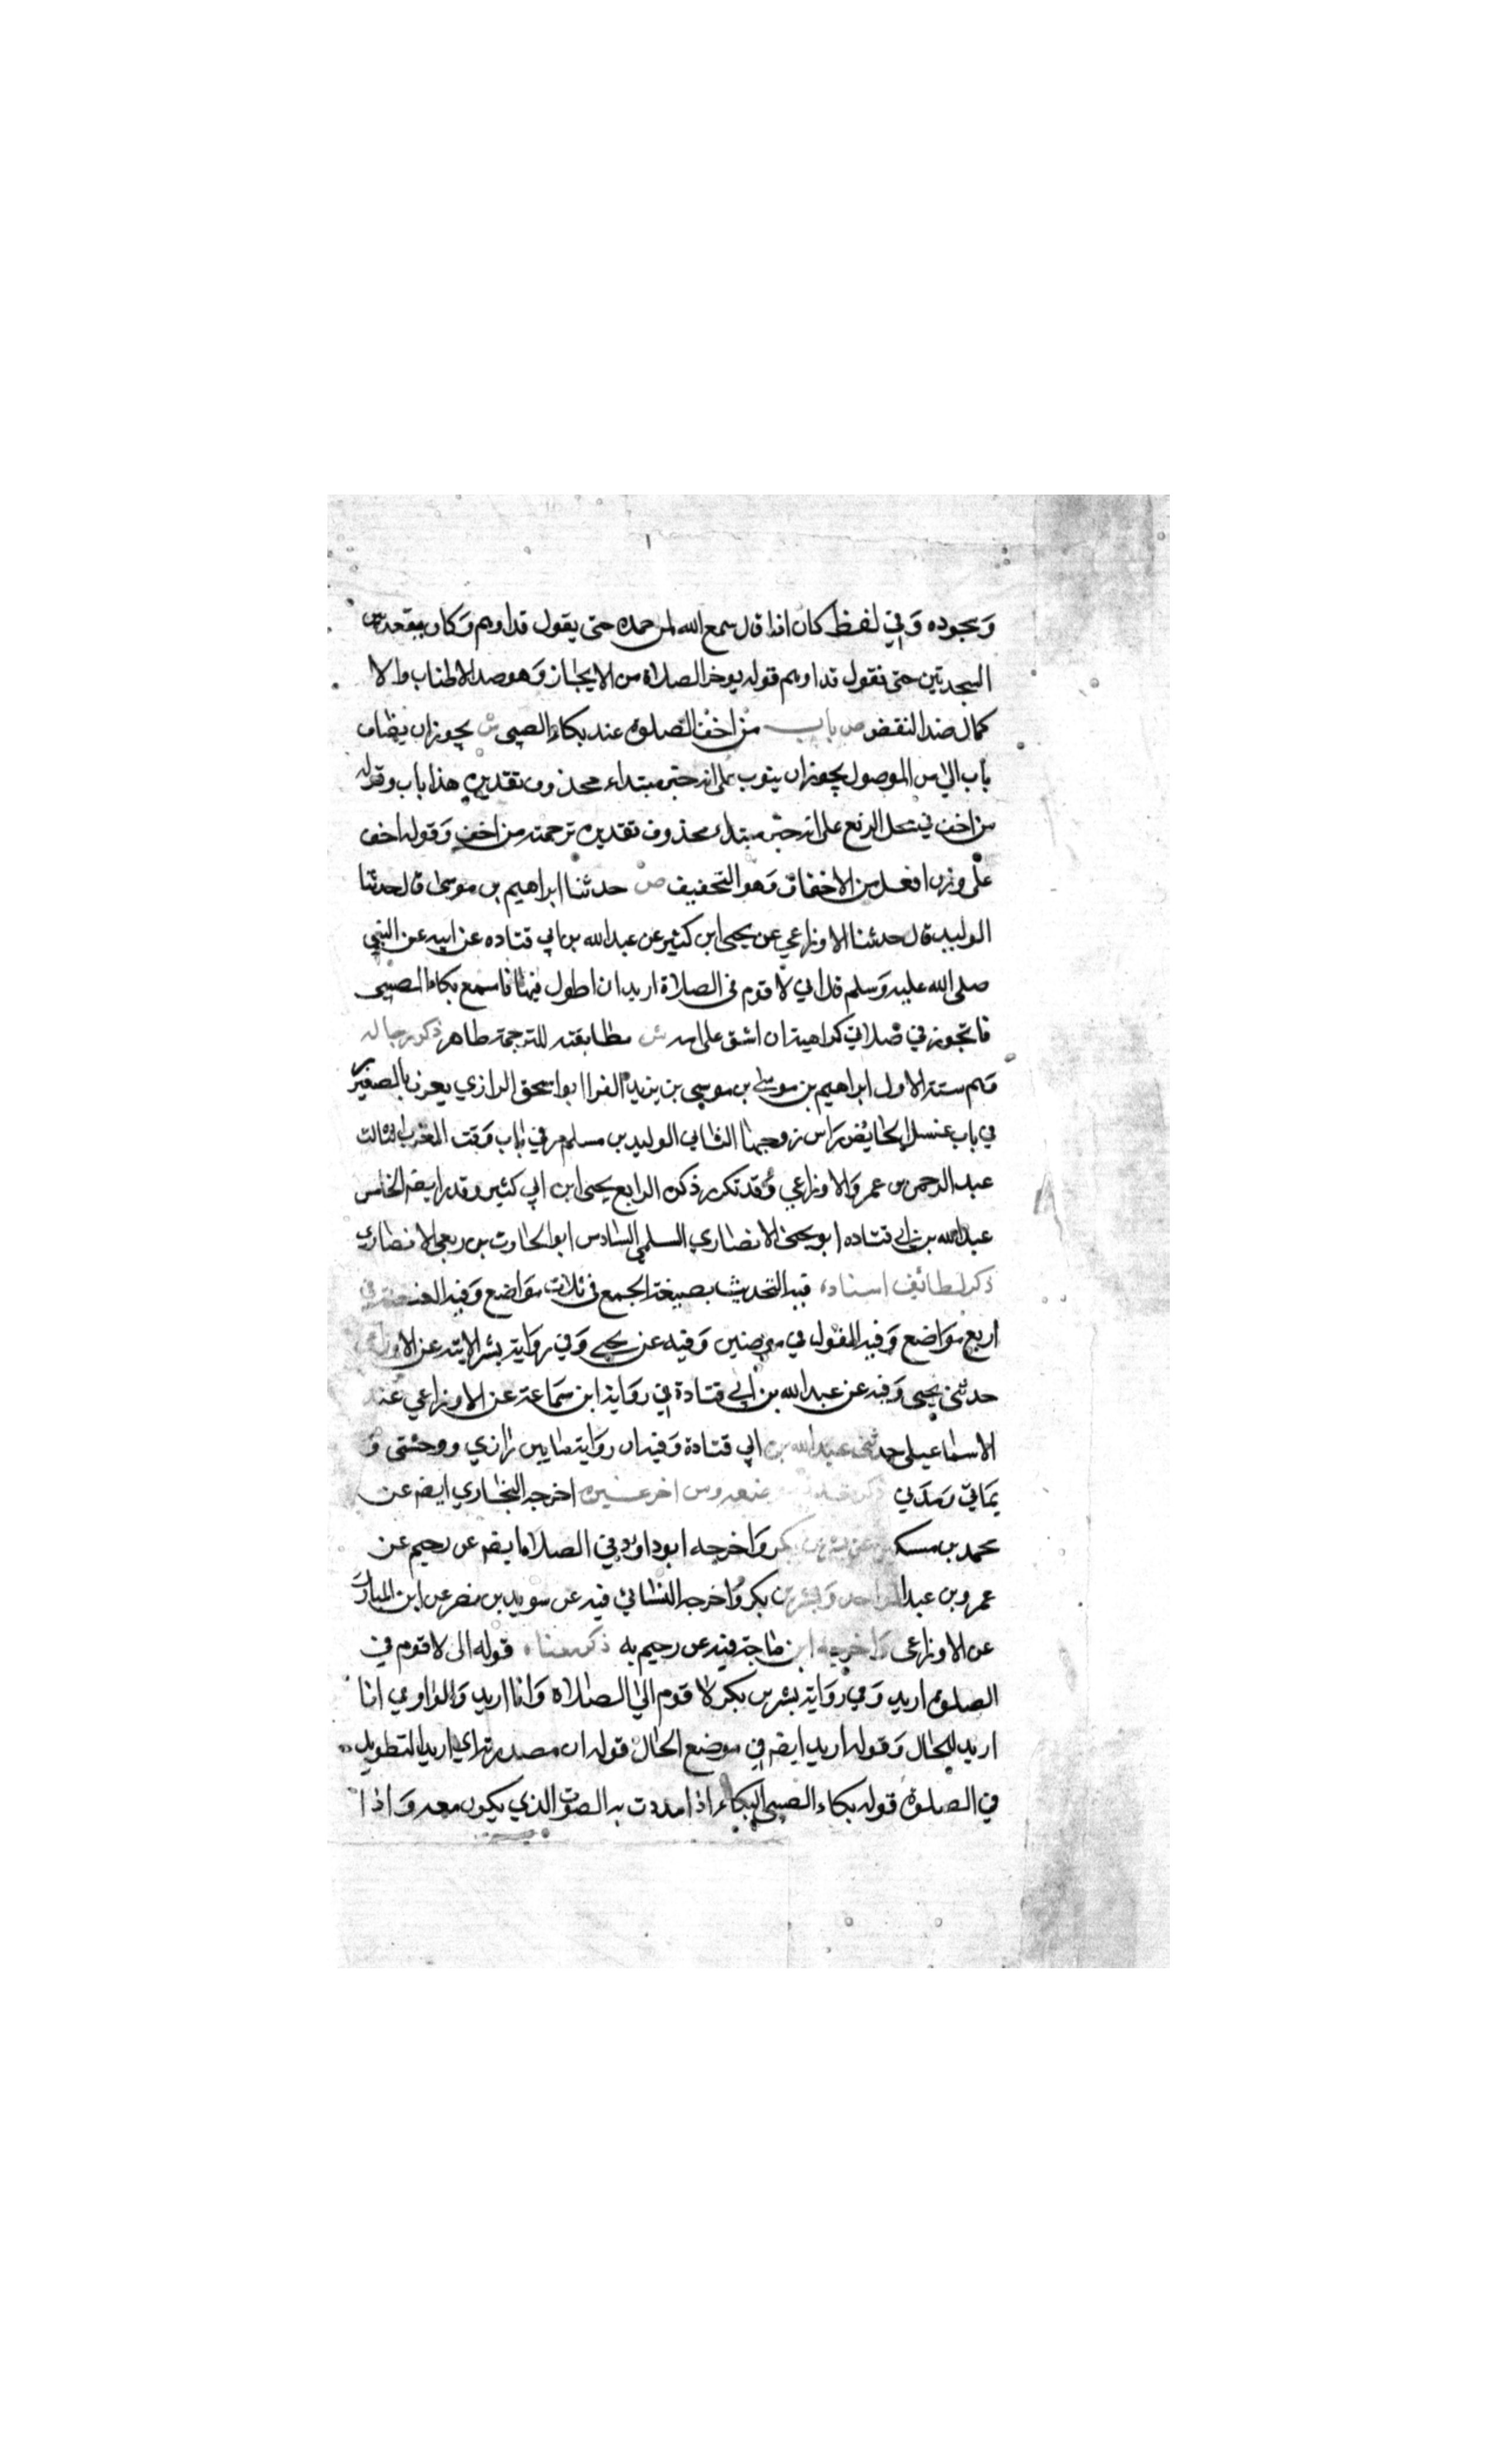 وسجوده وفي لفظ كان اذا قال سمع الله لمن حمده حتى يقول قد اوهم وكان يقعد بين
السجدتين حتى نقول قد اوهم قوله يوخر الصلاة من الايجاز وهو ضد الاطناب والا
كمال ضد النقض ص باب من اخف الصلوة عند بكاء الصبى ش يجوز ان يضاف
باب الي من الموصول يجوز ان ينوب على انه خبر مبتداء محذوف تقديره هذا باب وقوله
من اخف في محل الرفع على انه خبر مبتداء محذوف تقديره ترجمته من اخف وقوله اخف
على وزن افعل من الاخفاف وهو التخفيف ص حدثنا ابراهيم بن موسى قال حدثنا
الوليد قال حدثنا الاوزاعي عن يحيى ابن كثير عن عبد الله بن ابي قتاده عن ابيه عن النبي
صلى الله عليه وسلم قال اني لا قوم في الصلاة اريد ان اطول فيها فاسمع بكاء الصبي
فاتجوز في صلاتي كراهية ان اشق على امه ش مطابقته للترجمة ظاهر ذكر رجاله
وهم ستة الاول ابراهيم بن موسى بن موسى بن يزيد الفرا ابو اسحق الرازي يعرف بالصغير
في باب غسل الحايض راس زوجها الثاني الوليد بن مسلم مر في باب وقت المغرب الثالث
عبد الرحمن بن عمرو الاوزاعي وقد تكرر ذكره الرابع يحيى ابن ابي كثير وقد ايضه الخامس
عبد الله بن ابي قتاده ابو يحيى الانصاري السلمي السادس ابو الحارث بن ربعي الانصاري
ذكر لطائف اسناده فيه التحديث بصيغة الجمع في ثلاث مواضع وفيه العنعنة في
اربع مواضع وفيه القول في موضعين وفيه عن يحيى وفي رواية بشر الاتية عن الاوزاعي
حدثني يحيى وفيه عن عبد الله بن ابي قتادة في رواية ابن سماعة عن الاوزاعي عند
الاسماعيلي حدثني عبد الله بن ابي قتادة وفيه ان رواية ما بين رازي ودمشقي و
يماني ومدني ذكر تعدد موضعه ومن اخرجه غيره اخرجه البخاري ايضه عن
محمد بن مسكين عن بشر بن بكر واخرجه ابو داود في الصلاة ايضه عن دحيم عن
عمرو بن عبد الواحد وبشر بن بكر واخرجه النسائي فيه عن سويد بن نصر عن ابن المبارك
عن الاوزاعي واخرجه ابن ماجة فيه عن دحيم به ذكر معناه قوله اني لا قوم في
الصلوة اريد وفي رواية بشر بن بكر لا قوم الي الصلاة وانا اريد والواوي انا
اريد للحال وقوله اريد ايضه في موضع الحال قوله ان مصدرية اي اريد التطويل
في الصلوة قوله بكاء الصبي البكاء اذا مددت به الصوت الذي يكون معه واذا